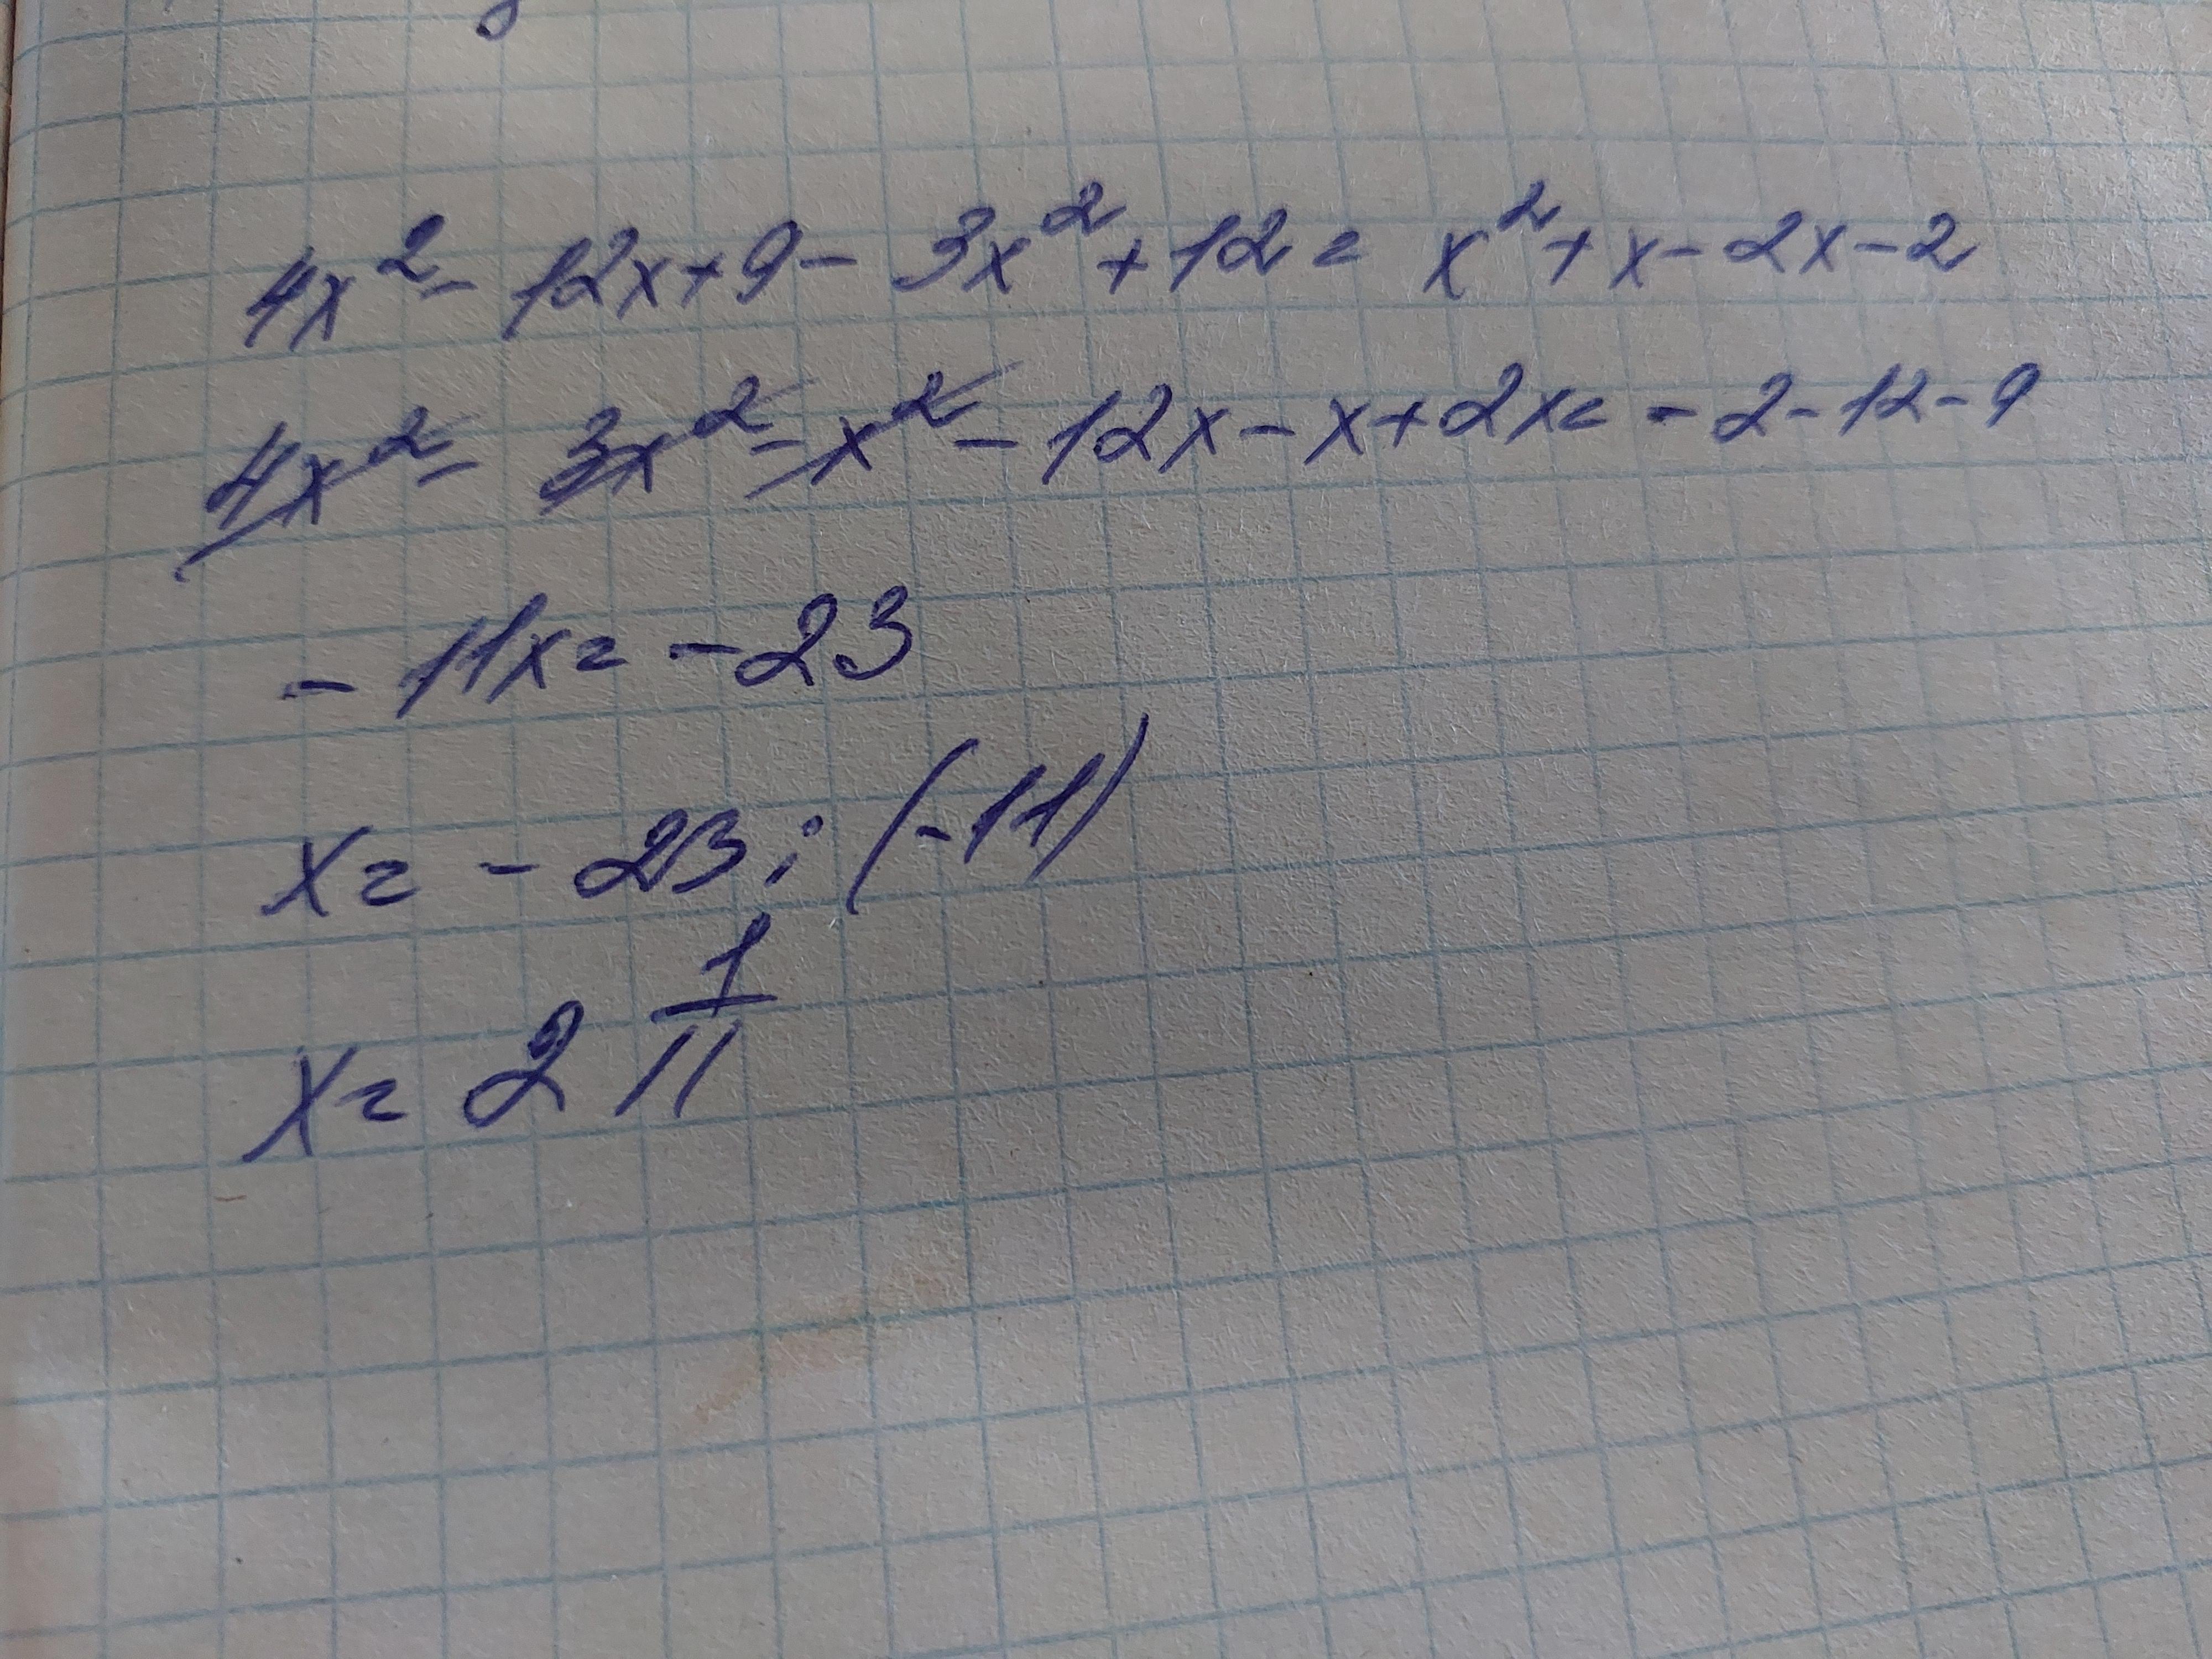 4x² - 12x + 9 - 3x² + 12 = x² + x - 2x - 2
4x² - 3x² - x² - 12x - x + 2x = - 2 - 12 - 9
- 11x = - 23
x = - 23 : (-11)
x = 2 1/11